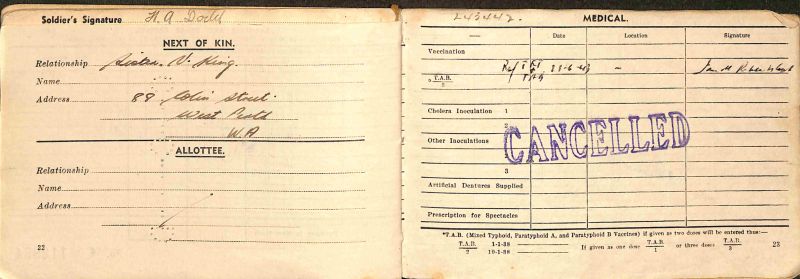 Soldier's Signature H. A. Dodd
NEXT OF KIN.
Relationship Sister V. King.
Name
Address 88 Colin Street
West Perth
W.A
ALLOTTEE.
Relationship
Name
Address
22
MEDICAL.
— Date Location Signature
Vaccination
T.A.B. 23-6-43 –
2
Cholera Inoculation 1
2
Other Inoculations
3
CANCELLED
Artificial Dentures Supplied
Prescription for Spectacles
*T.A.B. (Mixed Typhoid, Paratyphoid A, and Paratyphoid B Vaccines) if given as two doses will be entered thus:—
T.A.B. 1-1-38 If given as one dose T.A.B. or three doses T.A.B.
2 10-1-38 1 3
23